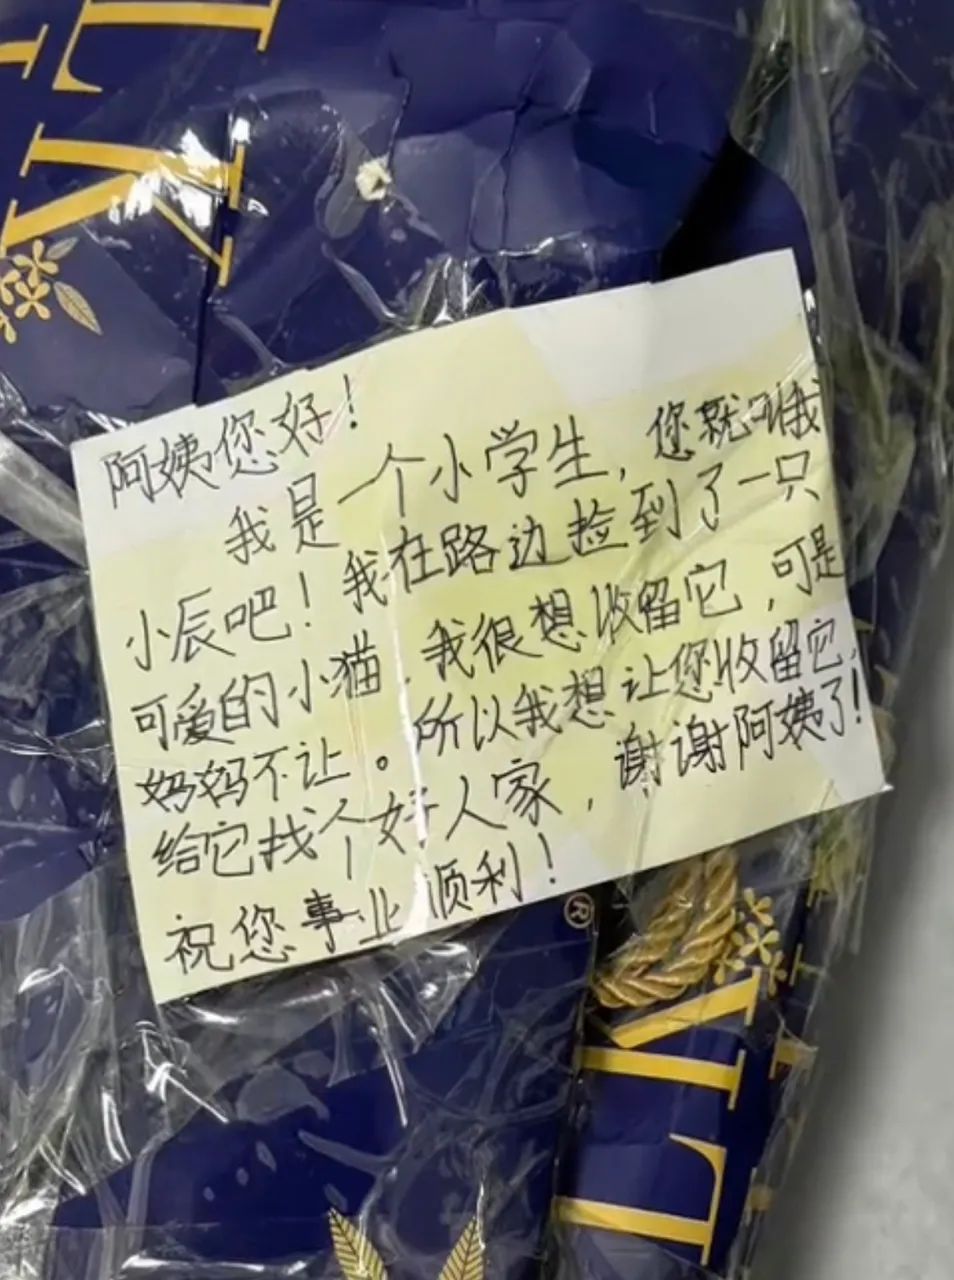 LK
阿姨您好！
我是一个小学生，您就叫我
小辰吧！我在路边捡到了一只
可爱的小猫，我很想收留它，可是
妈妈不让。所以我想让您收留它，
给它找个好人家，谢谢阿姨了！
祝您事业顺利！
®